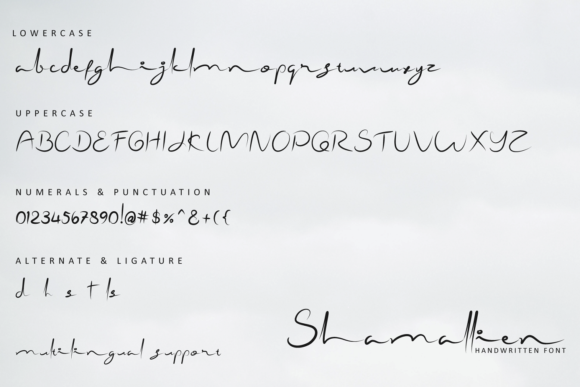 LOWERCASE
abcdefghijklmnopqrstuvwxyz
UPPERCASE
ABCDEFGHIJKLMNOPQRSTUVWXYZ
NUMERALS & PUNCTUATION
01234567890!@#$%^&+({
ALTERNATE & LIGATURE
d h s t ls
multilingual support
Shamallien
HANDWRITTEN FONT